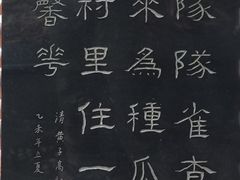 隊隊雀查
來為種瓜
村里住一
馨花
清黄子高
乙未年立夏